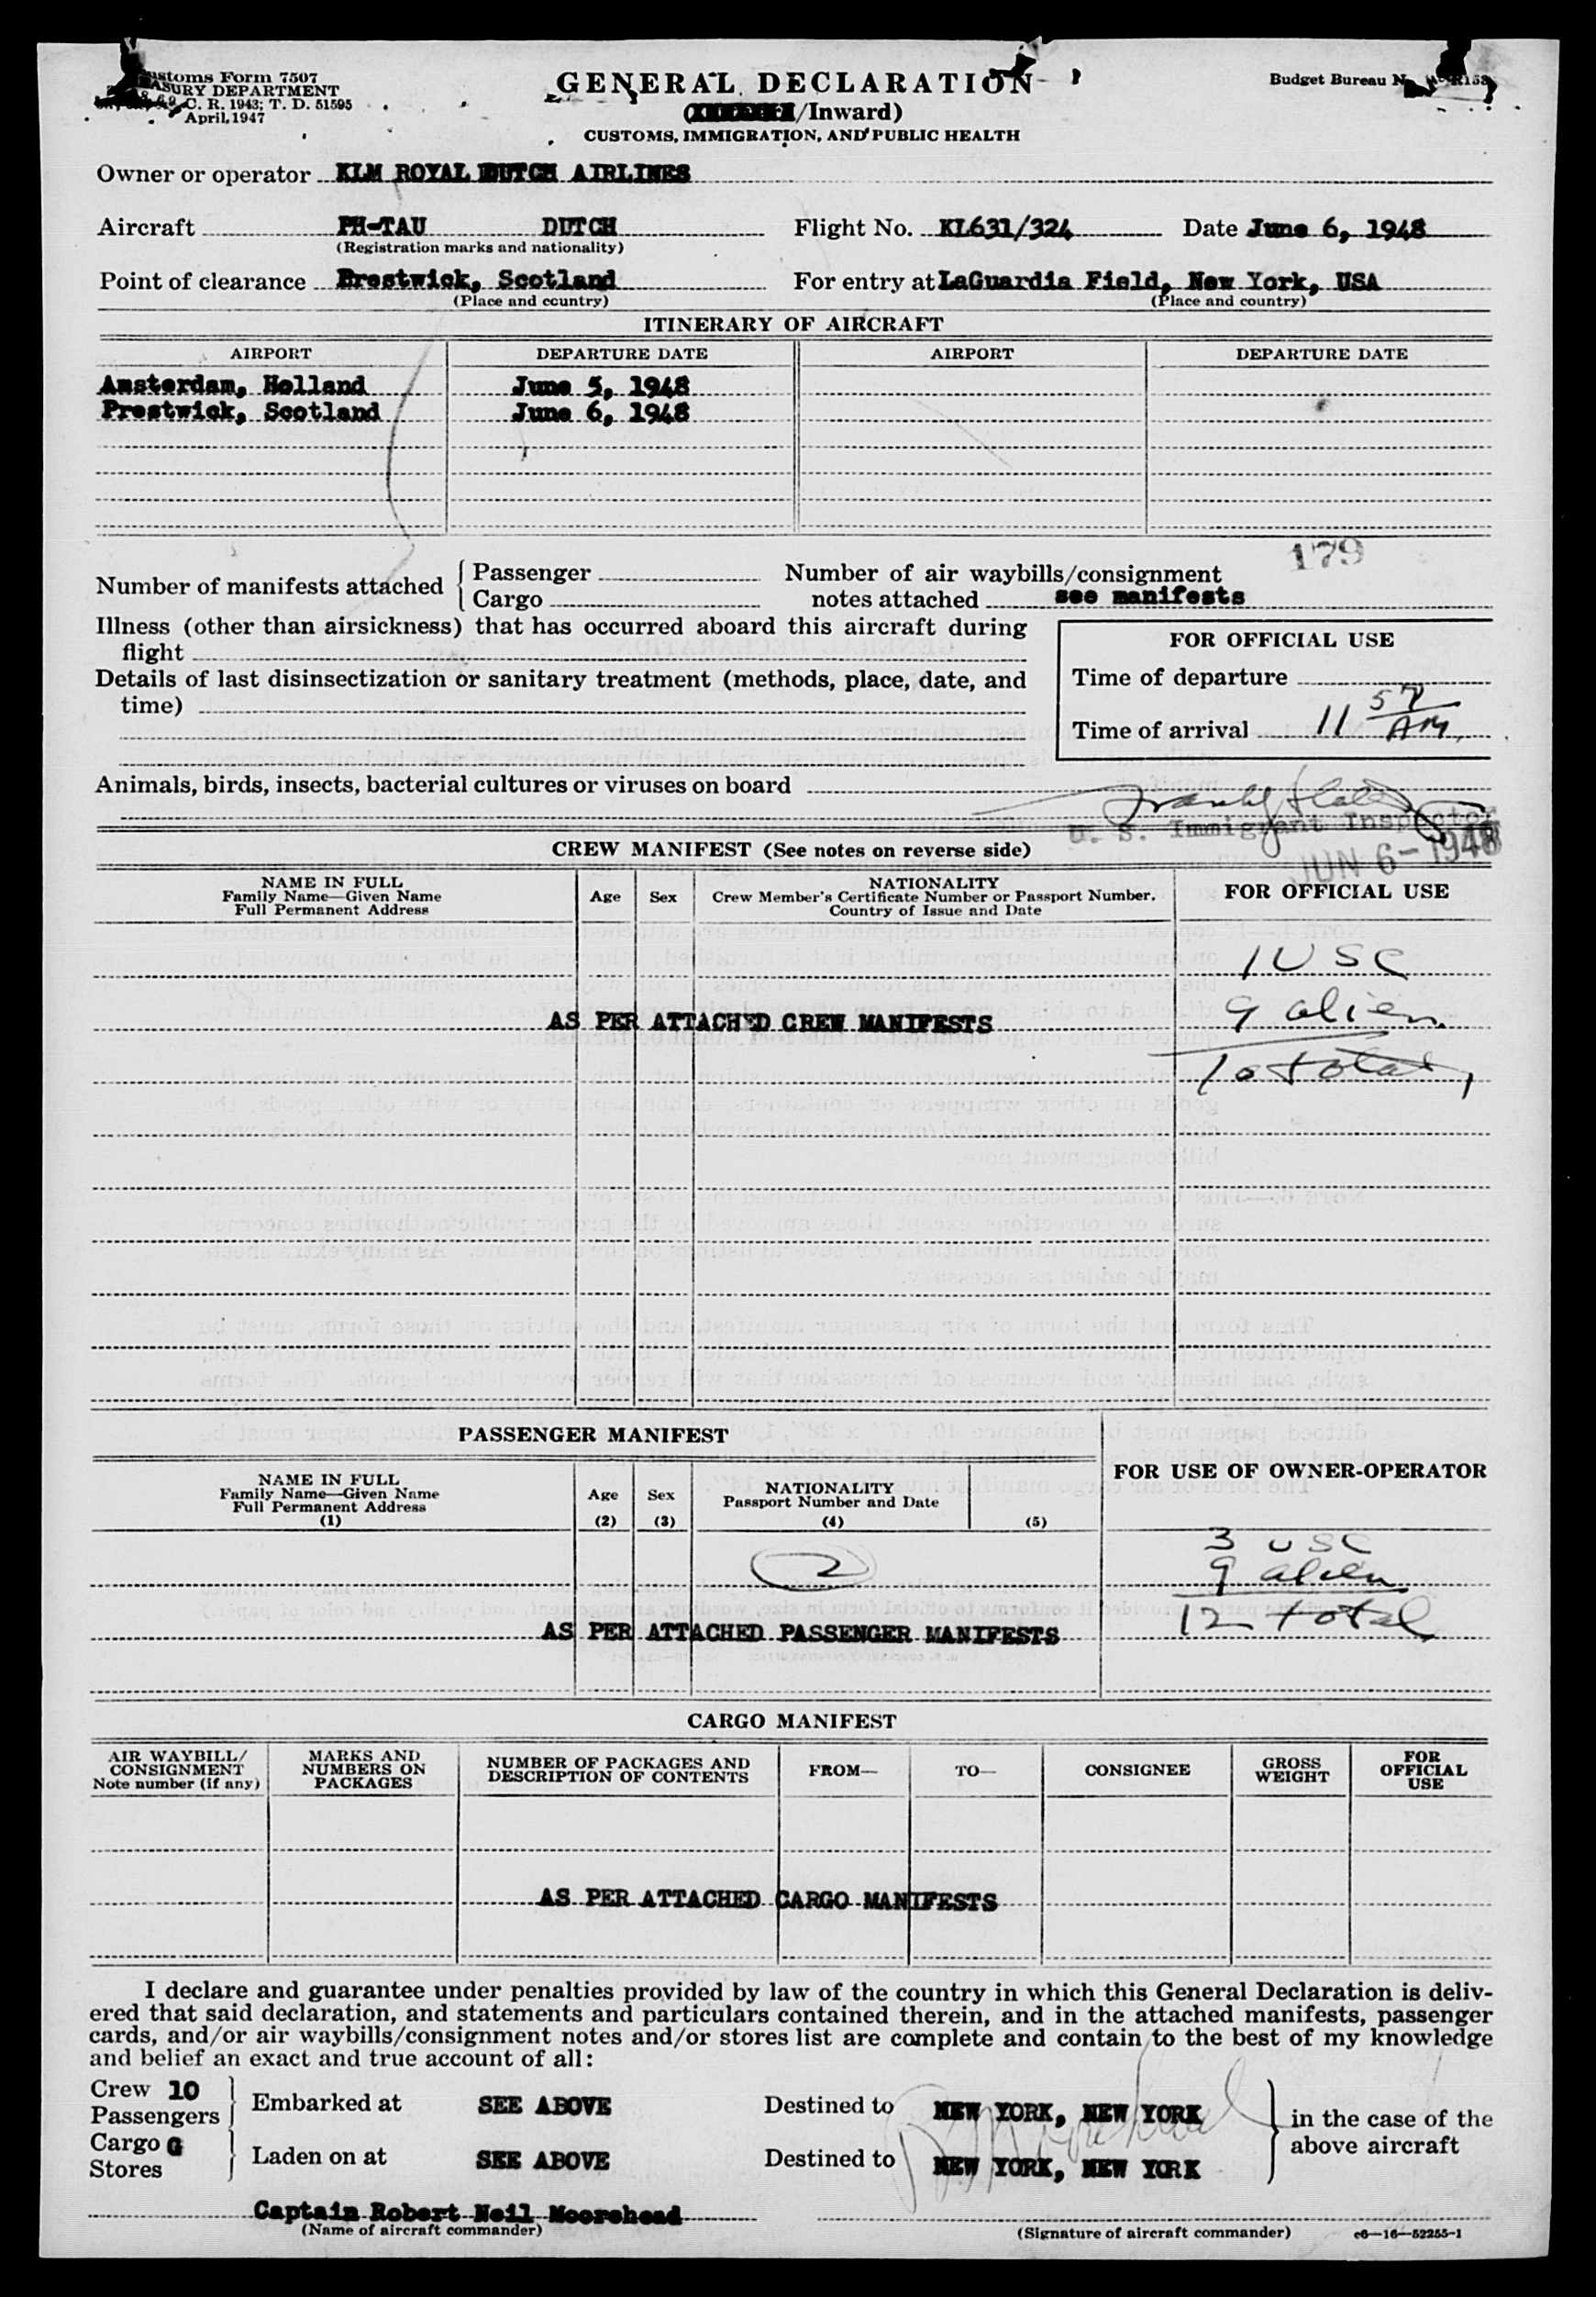 Customs Form 7507
TREASURY DEPARTMENT
C. R. 1943; T. D. 51595
April, 1947
GENERAL DECLARATION
/Inward)
CUSTOMS, IMMIGRATION, AND PUBLIC HEALTH
Budget Bureau No.
Owner or operator KLM ROYAL DUTCH AIRLINES
Aircraft PH-TAU DUTCH Flight No. KL631/324 Date June 6, 1948
(Registration marks and nationality)
Point of clearance Prestwick, Scotland For entry at LaGuardia Field, New York, USA
(Place and country) (Place and country)
ITINERARY OF AIRCRAFT
AIRPORT DEPARTURE DATE AIRPORT DEPARTURE DATE
Amsterdam, Holland June 5, 1948
Prestwick, Scotland June 6, 1948
179
Number of manifests attached { Passenger Number of air waybills/consignment
Cargo notes attached see manifests
Illness (other than airsickness) that has occurred aboard this aircraft during
flight
FOR OFFICIAL USE
Details of last disinsectization or sanitary treatment (methods, place, date, and
time)
Time of departure
Time of arrival 11 57 AM
Animals, birds, insects, bacterial cultures or viruses on board
U. S. Immigrant Inspector
JUN 6-1948
CREW MANIFEST (See notes on reverse side)
NAME IN FULL
Family Name—Given Name
Full Permanent Address
Age Sex
NATIONALITY
Crew Member's Certificate Number or Passport Number,
Country of Issue and Date
FOR OFFICIAL USE
1 USC
9 alien
AS PER ATTACHED CREW MANIFESTS
10 total
PASSENGER MANIFEST
FOR USE OF OWNER-OPERATOR
NAME IN FULL
Family Name—Given Name
Full Permanent Address
(1)
Age
(2)
Sex
(3)
NATIONALITY
Passport Number and Date
(4) (5)
2
3 USC
9 alien
12 total
AS PER ATTACHED PASSENGER MANIFESTS
CARGO MANIFEST
AIR WAYBILL/
CONSIGNMENT
Note number (if any)
MARKS AND
NUMBERS ON
PACKAGES
NUMBER OF PACKAGES AND
DESCRIPTION OF CONTENTS
FROM—
TO—
CONSIGNEE
GROSS
WEIGHT
FOR
OFFICIAL
USE
AS PER ATTACHED CARGO MANIFESTS
I declare and guarantee under penalties provided by law of the country in which this General Declaration is deliv-
ered that said declaration, and statements and particulars contained therein, and in the attached manifests, passenger
cards, and/or air waybills/consignment notes and/or stores list are complete and contain to the best of my knowledge
and belief an exact and true account of all:
Crew 10
Passengers } Embarked at SEE ABOVE Destined to NEW YORK, NEW YORK
Cargo G
Stores } Laden on at SEE ABOVE Destined to NEW YORK, NEW YORK
in the case of the
above aircraft
Captain Robert Neil Moorehead
(Name of aircraft commander) (Signature of aircraft commander) c6—16—52255-1